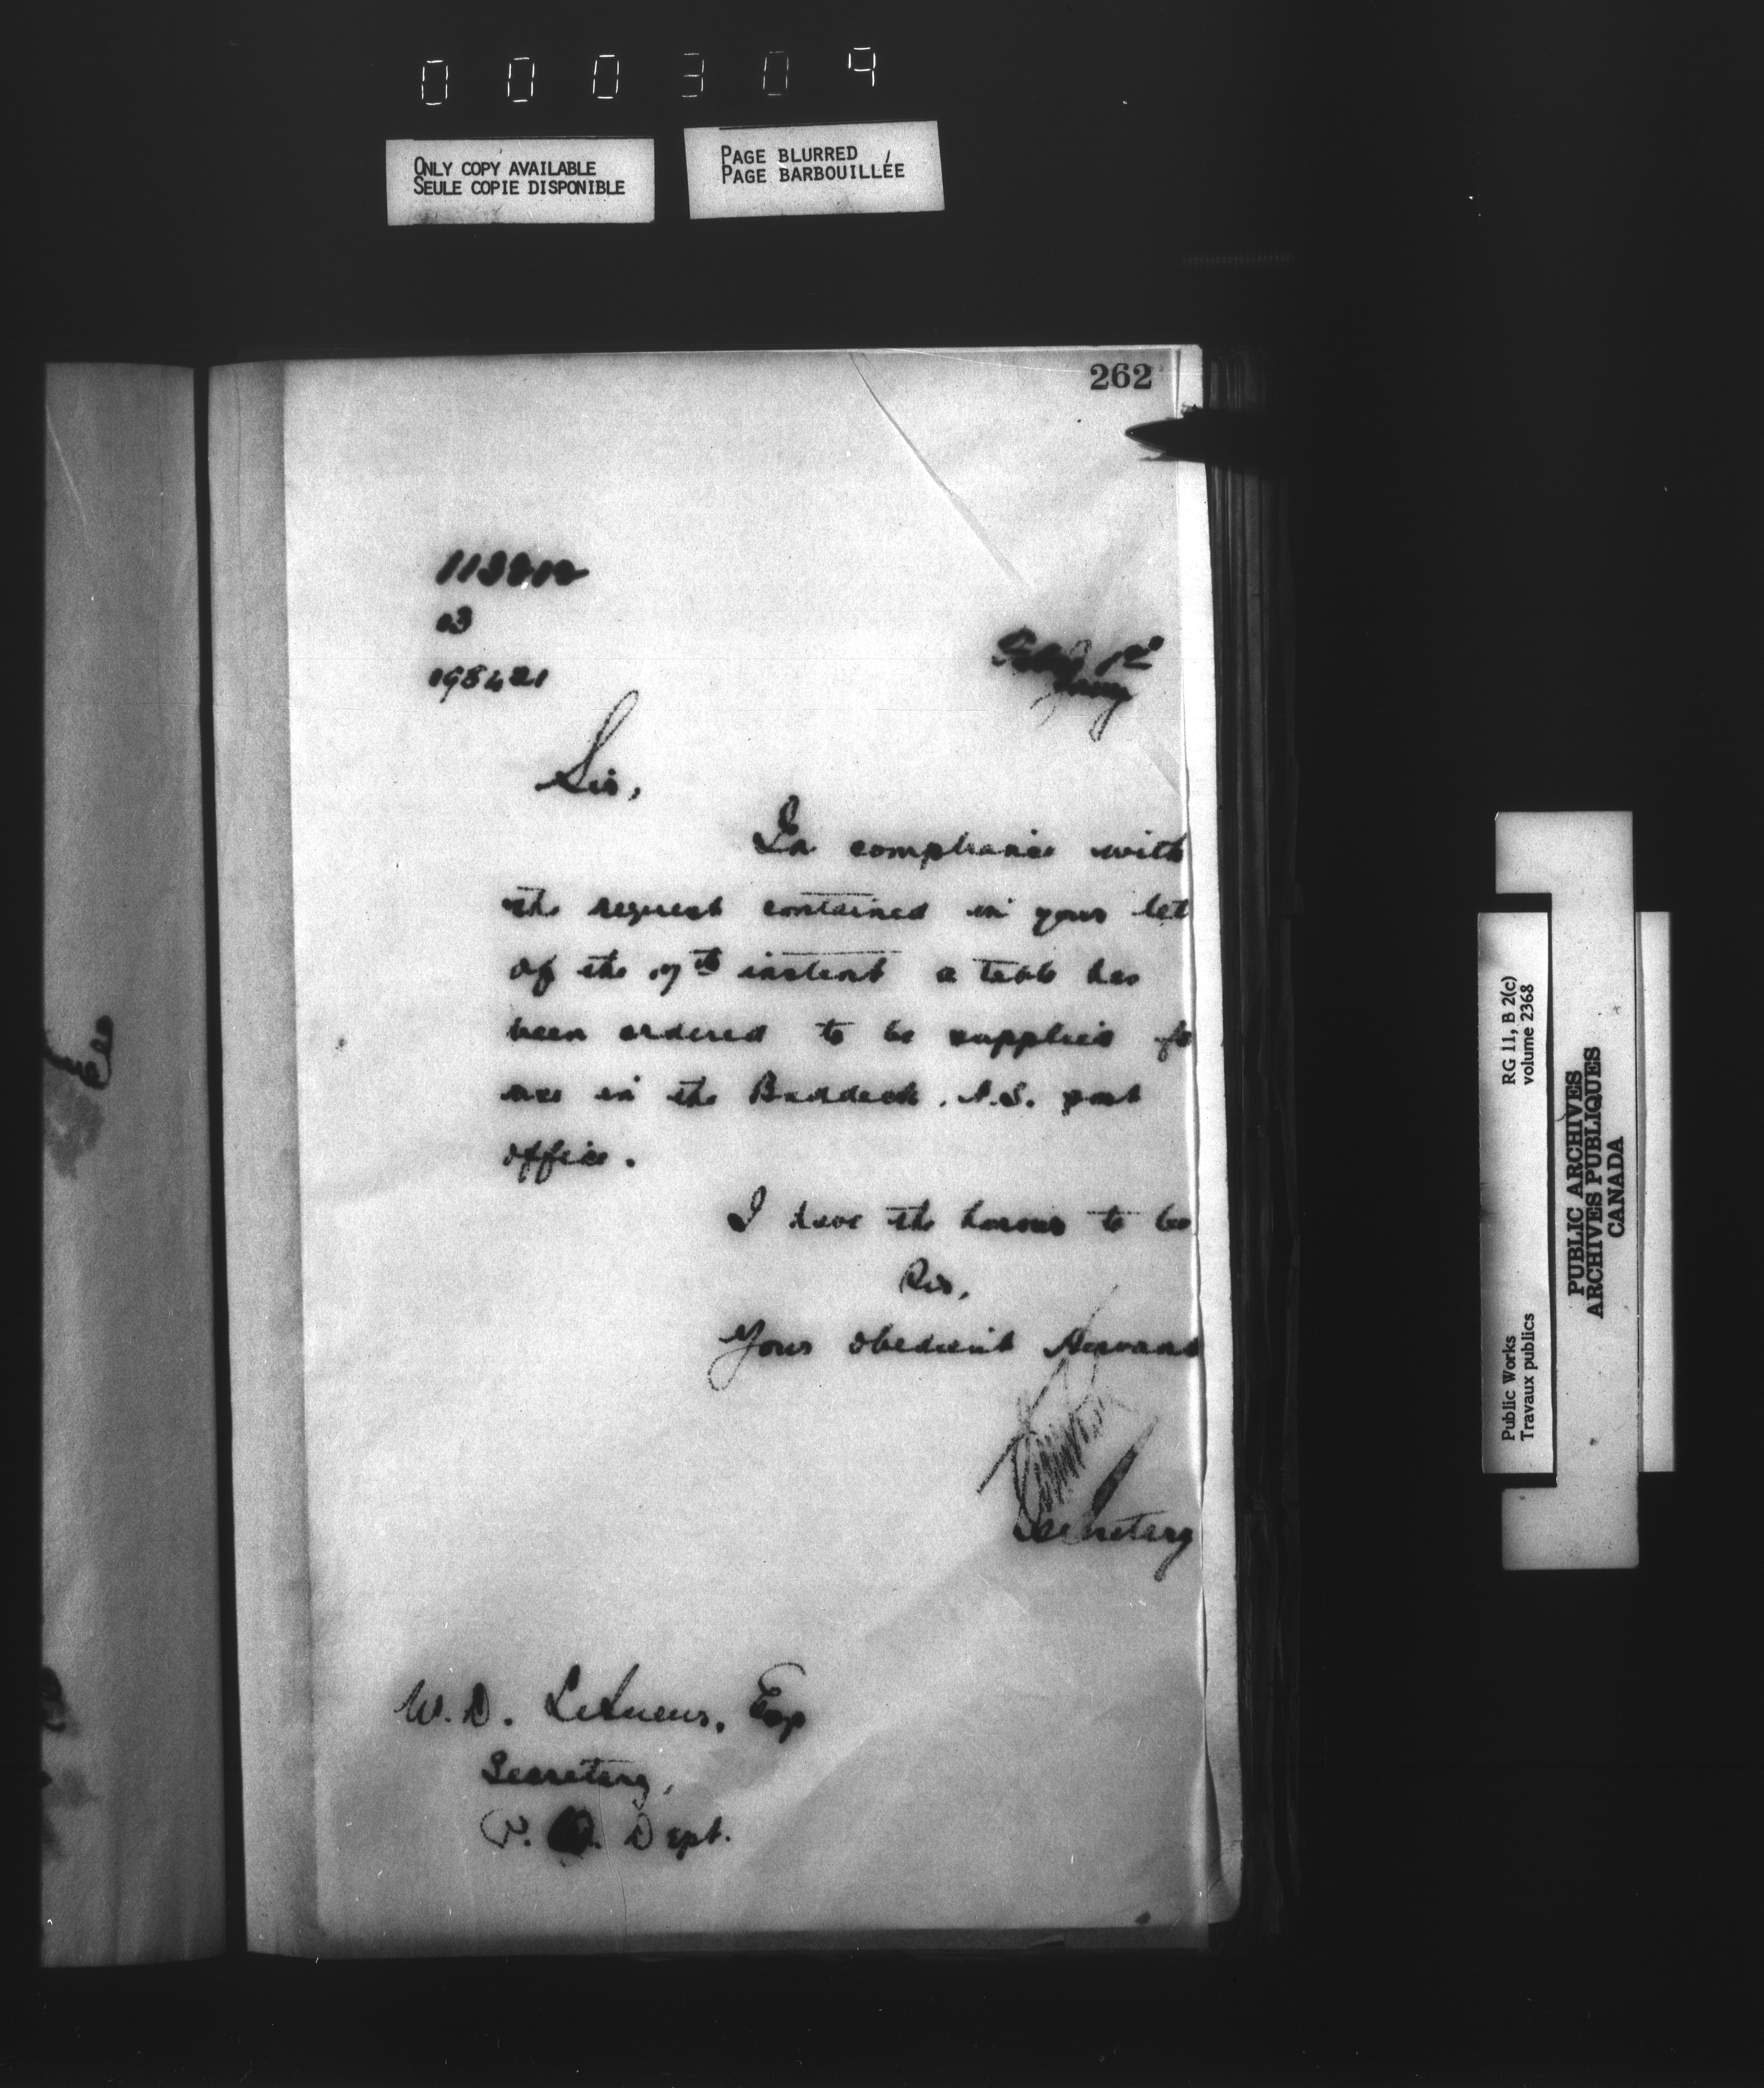 000309
ONLY COPY AVAILABLE
SEULE COPIE DISPONIBLE
PAGE BLURRED
PAGE BARBOUILLÉE
262
03
Sir,
In compliance with
the request contained in your let
of the 17th instant a table has
been ordered to be supplied fo
use in the Baddeck, N.S. post
office.
I have the honour to be
Sir,
Your obedient Servant
Secretary
W. D. LeSueur, Esq
Secretary,
P. O. Dept.
RG 11, B 2(c)
volume 2368
Public Works
Travaux publics
PUBLIC ARCHIVES
ARCHIVES PUBLIQUES
CANADA